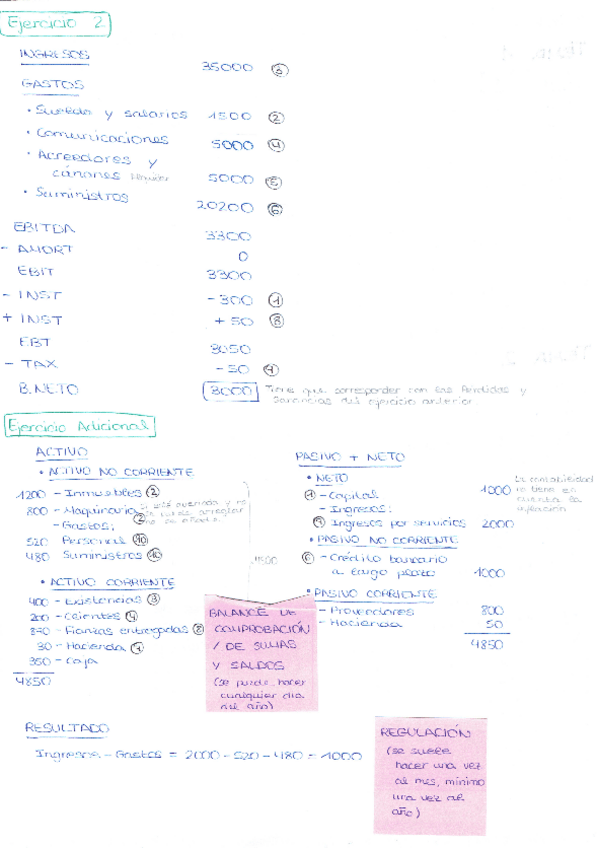 Ejercicio 2
INGRESOS
35000 ③
GASTOS
• Sueldos y salarios 1500 ②
• Comunicaciones 5000 ④
• Acreedores y
cánones 5000 ⑤
• Suministros 20200 ⑥
EBITDA 3300
- AMORT 0
EBIT 3300
- INST - 300 ①
+ INST + 50 ⑧
EBT 3050
- TAX - 50
B. NETO 3000 Tiene que corresponder con las Pérdidas y
Ganancias del ejercicio anterior
Ejercicio Adicional
ACTIVO
• ACTIVO NO CORRIENTE
1200 - Inmuebles ②
800 - Maquinaria
- Gastos:
520 Personal ⑩
480 Suministros ⑩
• ACTIVO CORRIENTE
400 - Existencias ③
200 - Clientes ④
870 - Fianzas entregadas ⑧
30 - Hacienda
350 - Caja
4850
PASIVO + NETO
• NETO
① - Capital 1000
- Ingresos:
Ingresos por servicios 2000
La contabilidad
no tiene en
cuenta la
inflación
• PASIVO NO CORRIENTE
⑥ - Crédito bancario
a largo plazo 1000
• PASIVO CORRIENTE
- Proveedores 800
- Hacienda 50
4850
BALANCE DE
COMPROBACIÓN
/ DE SUMAS
Y SALDOS
(se puede hacer
cualquier día
del año)
RESULTADO
Ingresos - Gastos = 2000 - 520 - 480 = 1000
REGULACIÓN
(se suele
hacer una vez
al mes, mínimo
una vez al
año)